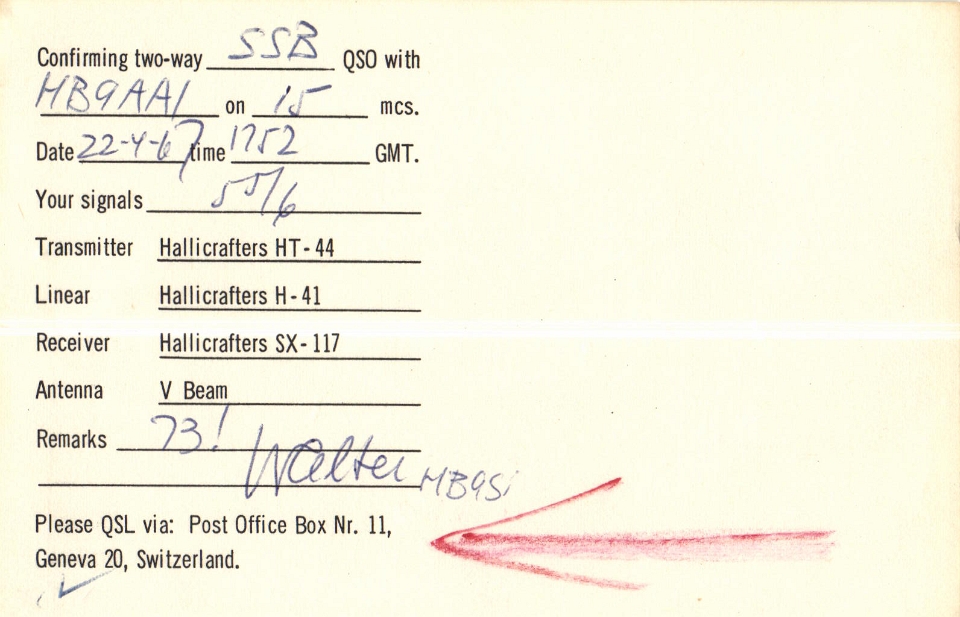 Confirming two-way SSB QSO with
HB9AAI on 15 mcs.
Date 22-4-67 time 1752 GMT.
Your signals 55/6
Transmitter Hallicrafters HT-44
Linear Hallicrafters H-41
Receiver Hallicrafters SX-117
Antenna V Beam
Remarks 73!
Walter HB9SI
Please QSL via: Post Office Box Nr. 11,
Geneva 20, Switzerland.